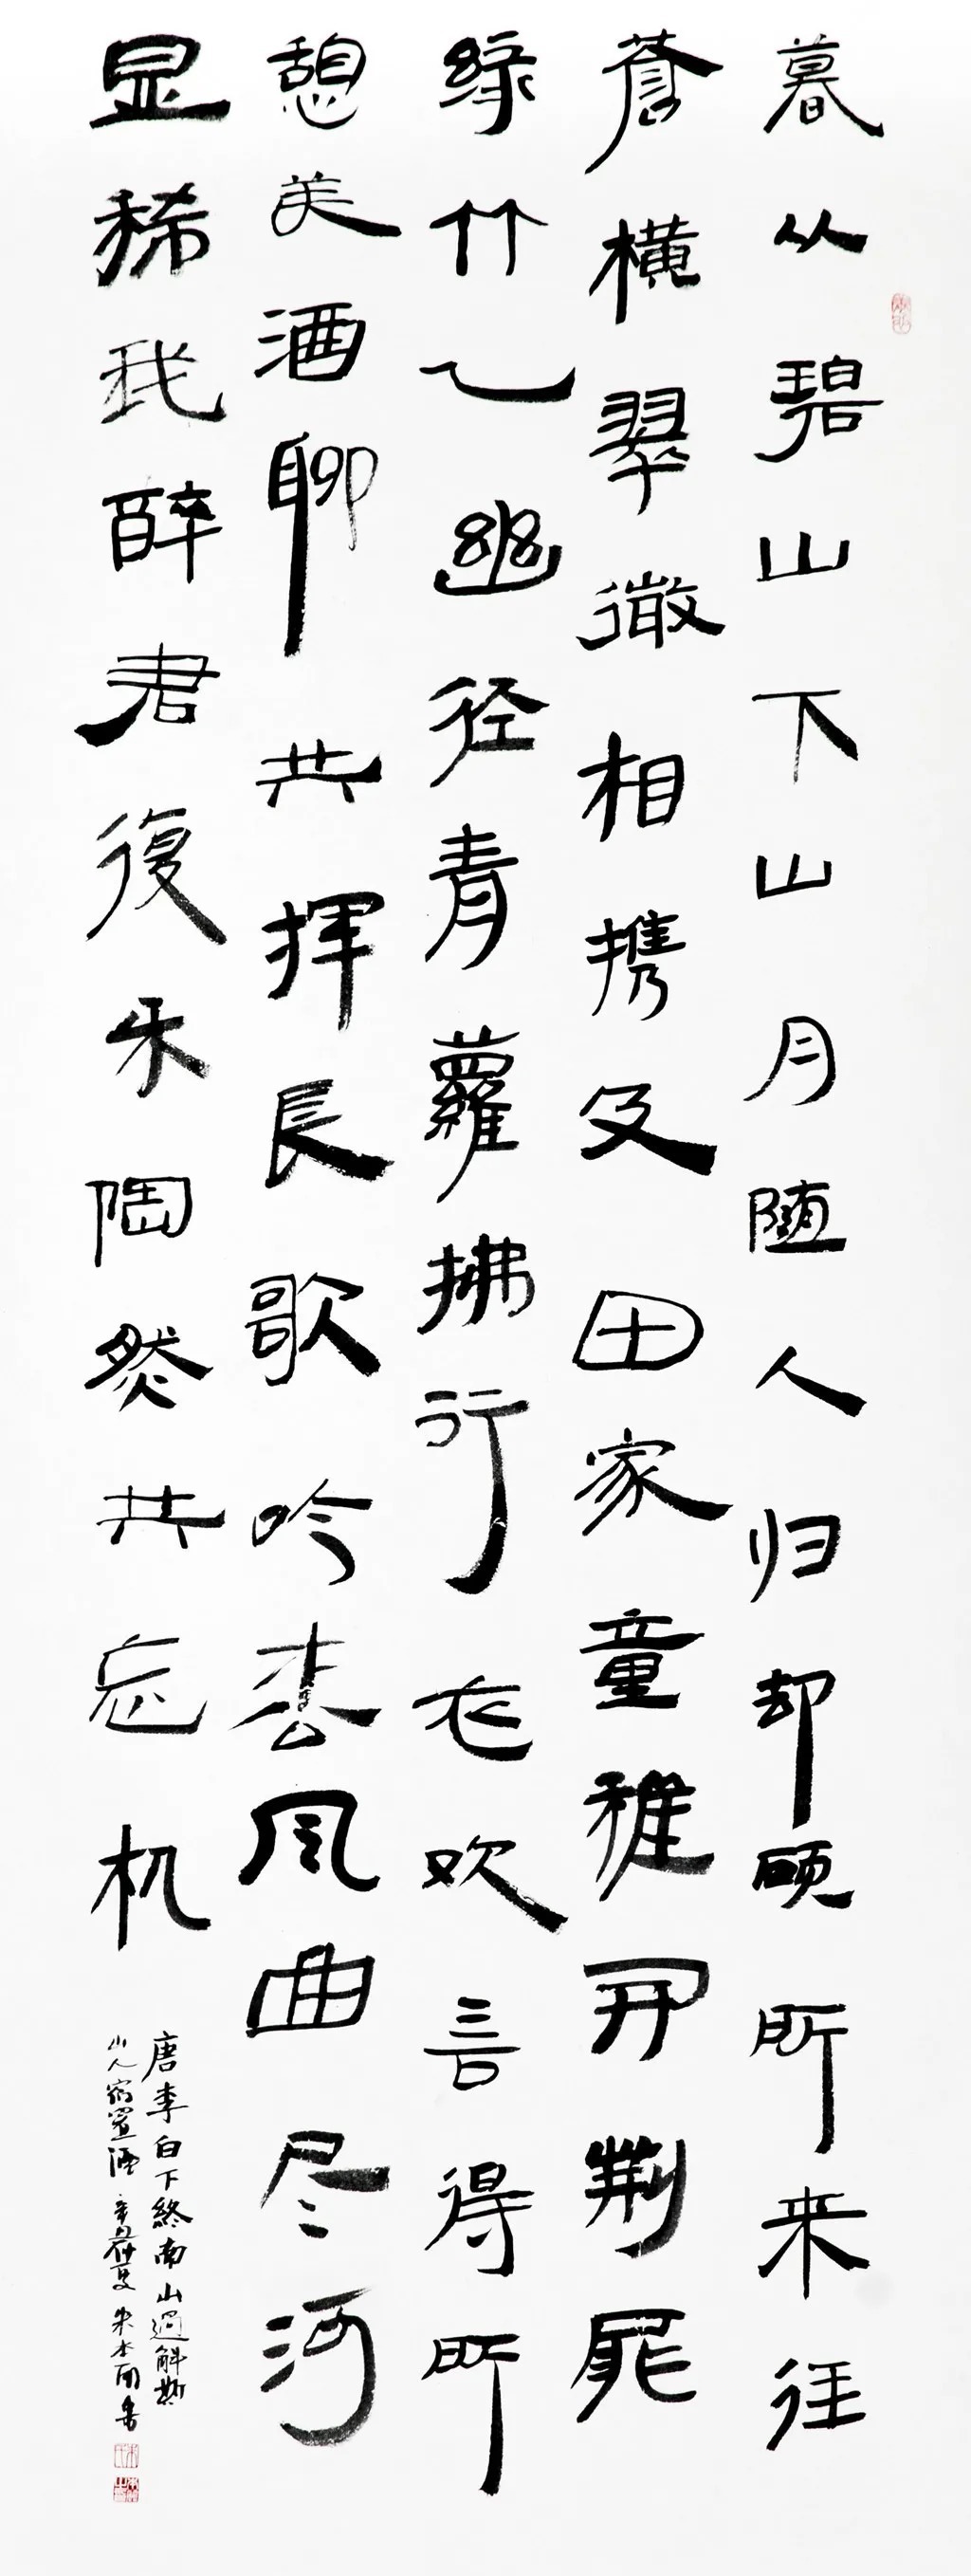 暮从碧山下山月随人归却顾所来径
蒼横翠微相携及田家童稚开荆扉
绿竹入幽径青蘿拂行衣欢言得所
憩美酒聊共挥長歌吟松风曲尽河
星稀我醉君復乐陶然共忘机
唐李白下終南山過斛斯
山人宿置酒 辛丑仲夏